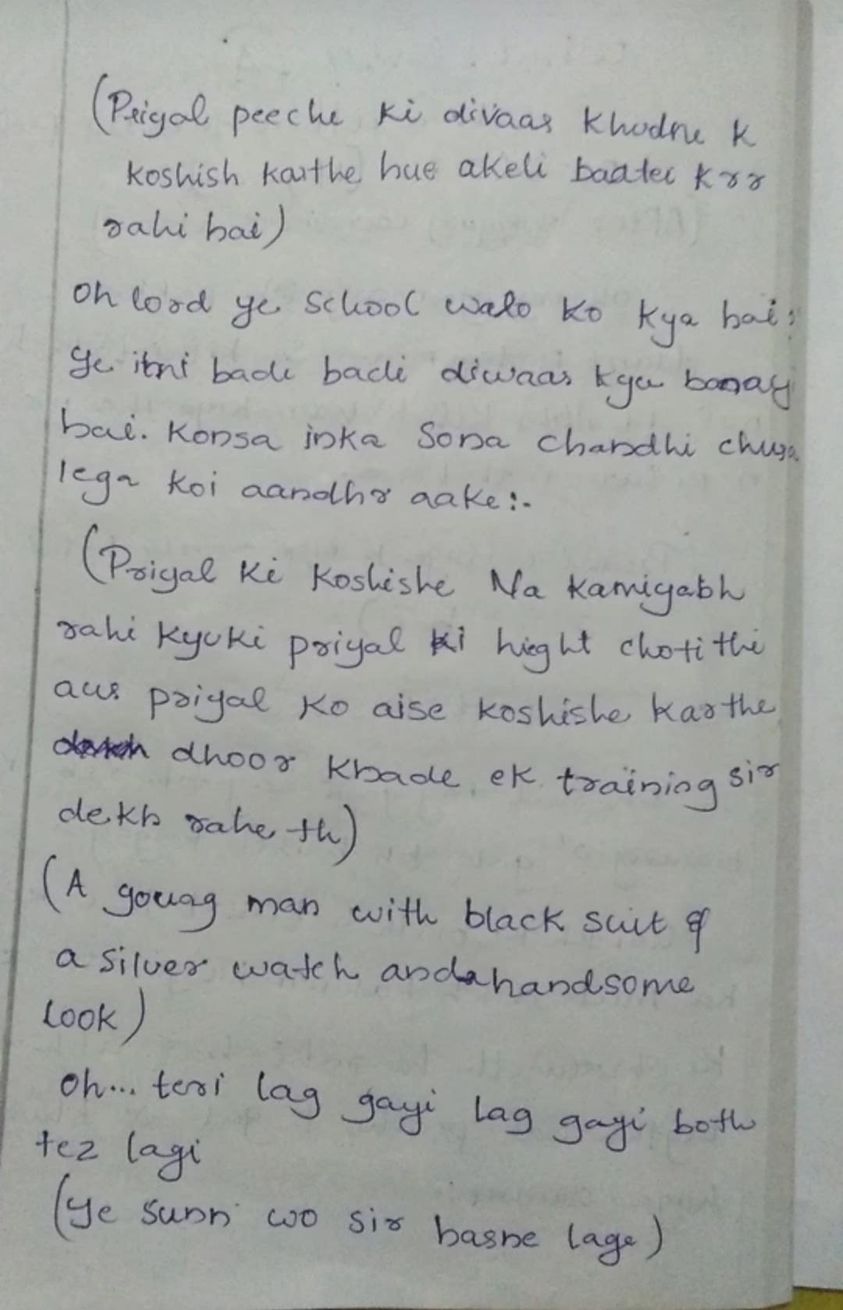 (Priyal peeche ki divaar khudne k
koshish karthe hue akeli baatei krr
rahi hai)
Oh lord ye School walo ko kya hai:
ye itni badi badi diwaar kyu banay
hai. Konsa inka Sona chandhi chura
lega koi aandhr aake:-
(Priyal ki koshishe Na kamiyabh
rahi kyuki priyal ki hieght choti thi
aur priyal ko aise koshishe karthe
dhoor khade ek training sir
dekh rahe th)
(A young man with black suit &
a silver watch and a handsome
look)
Oh... teri lag gayi lag gayi both
tez lagi
(ye sunn wo sir hasne lage)